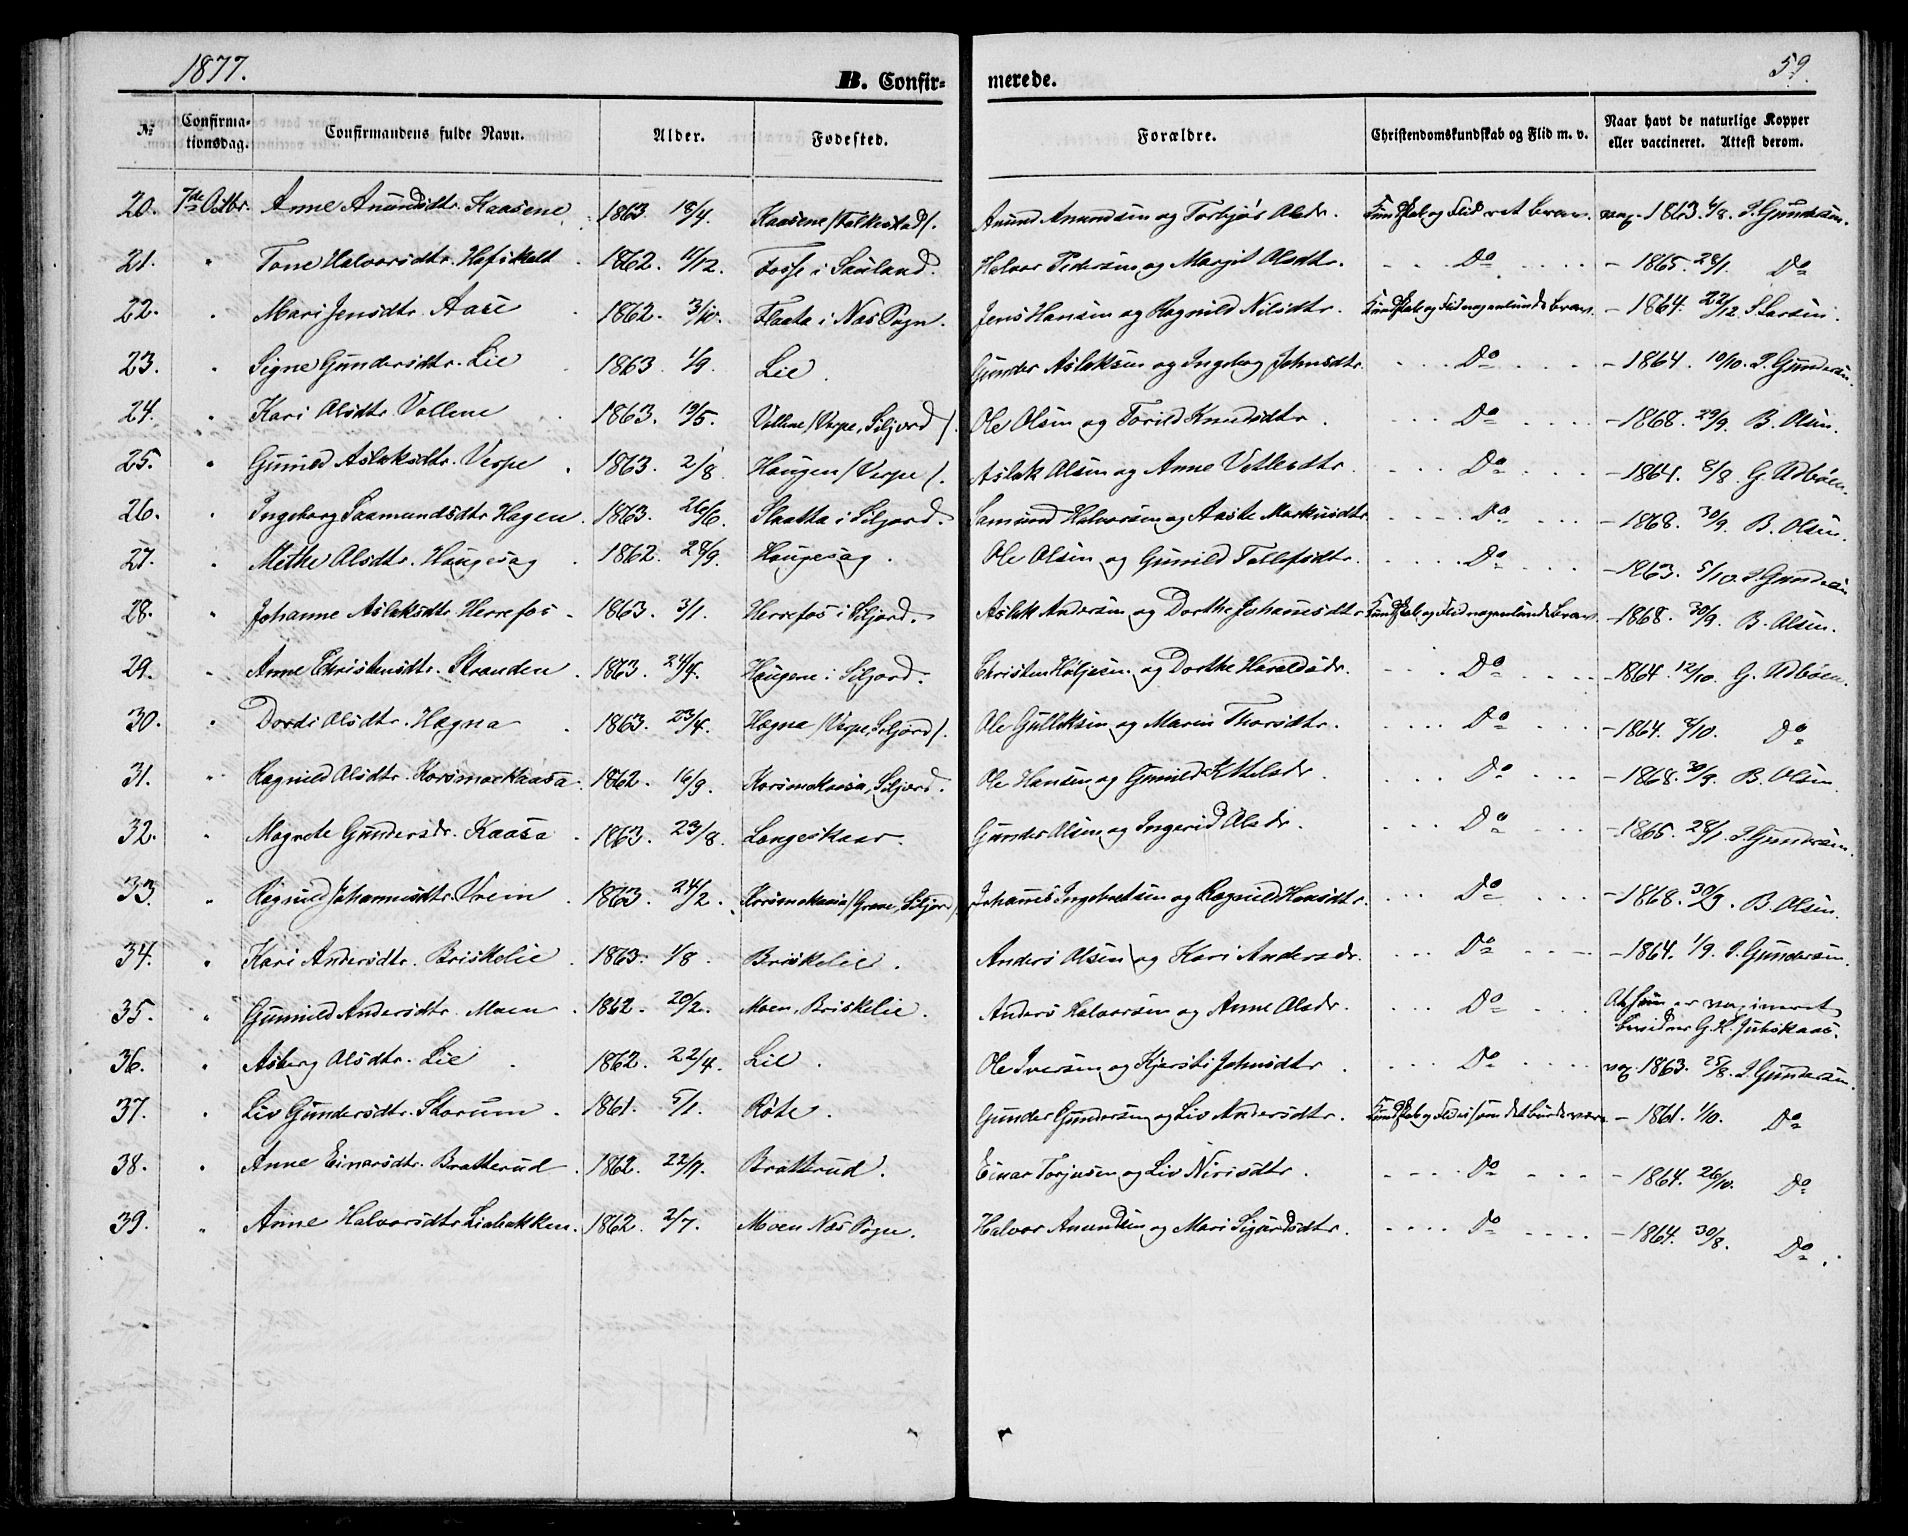 1877.
B. Confir-
merede.
59.
№ Confirma-tionsdag. Confirmandens fulde Navn. Alder. Fødested. Forældre. Christendomskundskab og Flid m. v. Naar havt de naturlige Kopper eller vaccineret. Attest derom.
20. 7de Octbr. Anne Anundsdtr. Kaasene 1863 18/4. Kaasene /Folkestad/. Anund Anundsen og Torbjør Olsdr. Kundskab og Flid ret brav. vax. 1863 6/8. J. Gundersen.
21. " Tone Halvorsdtr. 1862. 11/12. Fosse i Sauland. Halvor Pedersen og Margit Olsdtr. Do - 1865. 28/1. Do
22. " Mari Jensdtr. Aase 1862. 3/10. Flaata i Næs Sogn. Jens Hansen og Ragnild Nilsdtr. Kundskab og Flid nogenlunde brav. - 1864. 22/12. S. Larsen.
23. " Signe Gundersdtr. Lie 1863 1/9. Lie. Gunder Aslaksen og Ingeborg Johnsdtr. Do - 1864. 10/10. J. Gundersen.
24. " Kari Olsdtr. Vollene 1863. 19/5. Vollene /Verpe, Siljord/. Ole Olsen og Torild Knudsdtr. Do - 1868. 29/9. B. Olsen.
25. " Gunild Aslaksdtr. Verpe 1863. 2/8. Haugen /Verpe/. Aslak Olsen og Anne Vetlesdtr. Do - 1864. 8/8. G. Udbøen.
26. " Ingeborg Saamundsdtr Hagen. 1863. 26/6. Slaatta i Siljord. Samund Halvorsen og Aaste Markusdtr. Do - 1868. 30/9. B. Olsen.
27. " Methe Olsdtr. Haugesag 1862. 28/9. Haugesag. Ole Olsen og Gunild Tollefsdtr. Do - 1863. 5/10. J. Gundersen
28. " Johanne Aslaksdtr. Herrefos 1863. 3/1. Herrefos i Siljord. Aslak Andersen og Dorthe Johannesdtr Kundskab og Flid nogenlunde brav. - 1868. 30/9. B. Olsen.
29. " Anne Christensdtr. Stranden 1863. 24/4. Haugene i Siljord. Christen Høljesen og Dorthe Haraldsdr. Do - 1864. 12/10. G. Udbøen.
30. " Dordi Olsdtr. Hægna 1863. 23/4. Hægna /Verpe, Siljord/. Ole Gulliksen og Maren Thorsdtr. Do - 1864. 8/10. Do
31. " Ragnild Olsdtr. Korsmoekaasa 1862. 16/9. Korsmokaasa, Siljord. Ole Hansen og Gunild Kittelsdr. Do - 1868. 30/9. B. Olsen
32. " Magnete Gundersdr. Kaasa 1863. 29/8. Langeskaar. Gunder Olsen og Ingerid Olsdr. Do - 1865. 28/1. J. Gundersen.
33. " Ragnild Johannesdtr. Vrein 1863. 24/2. Korsmokaasa /Grave, Siljord/. Johannes Ingebretsen og Ragnild Hansdtr. Do - 1868. 30/9. B. Olsen.
34. " Kari Andersdtr. Briskelie 1863. 1/8. Briskelie. Anders Olsen og Kari Andersdr. Do - 1864. 1/9. J. Gundersen.
35. " Gunnild Andersdtr. Moen 1862. 20/2. Moen, Briskelie. Anders Halvorsen og Anne Olsdr. Do At hun er vaxineret bevidner G. H.
36. " Asberg Olsdtr. Lie 1862. 22/4. Lie. Ole Iversen og Kjersti Johnsdtr. Do vax. 1863. 25/8. J. Gundersen.
37. " Liv Gundersdtr. Storum 1861. 5/1. Røte. Gunder Gundersen og Liv Andersdtr. Kundskab og Flid som det burde være - 1861. 1/10. Do
38. " Anne Einersdtr. Bratterud 1862. Bratterud. Einar Torjusen og Liv Nirisdtr. Do - 1864. 26/10. Do
39. " Anne Halvorsdtr. Liabakken. 1862. 2/7. Moen Næs Sogn. Halvor Anundsen og Mari Sigurdsdtr. Do - 1864. 30/8. Do.